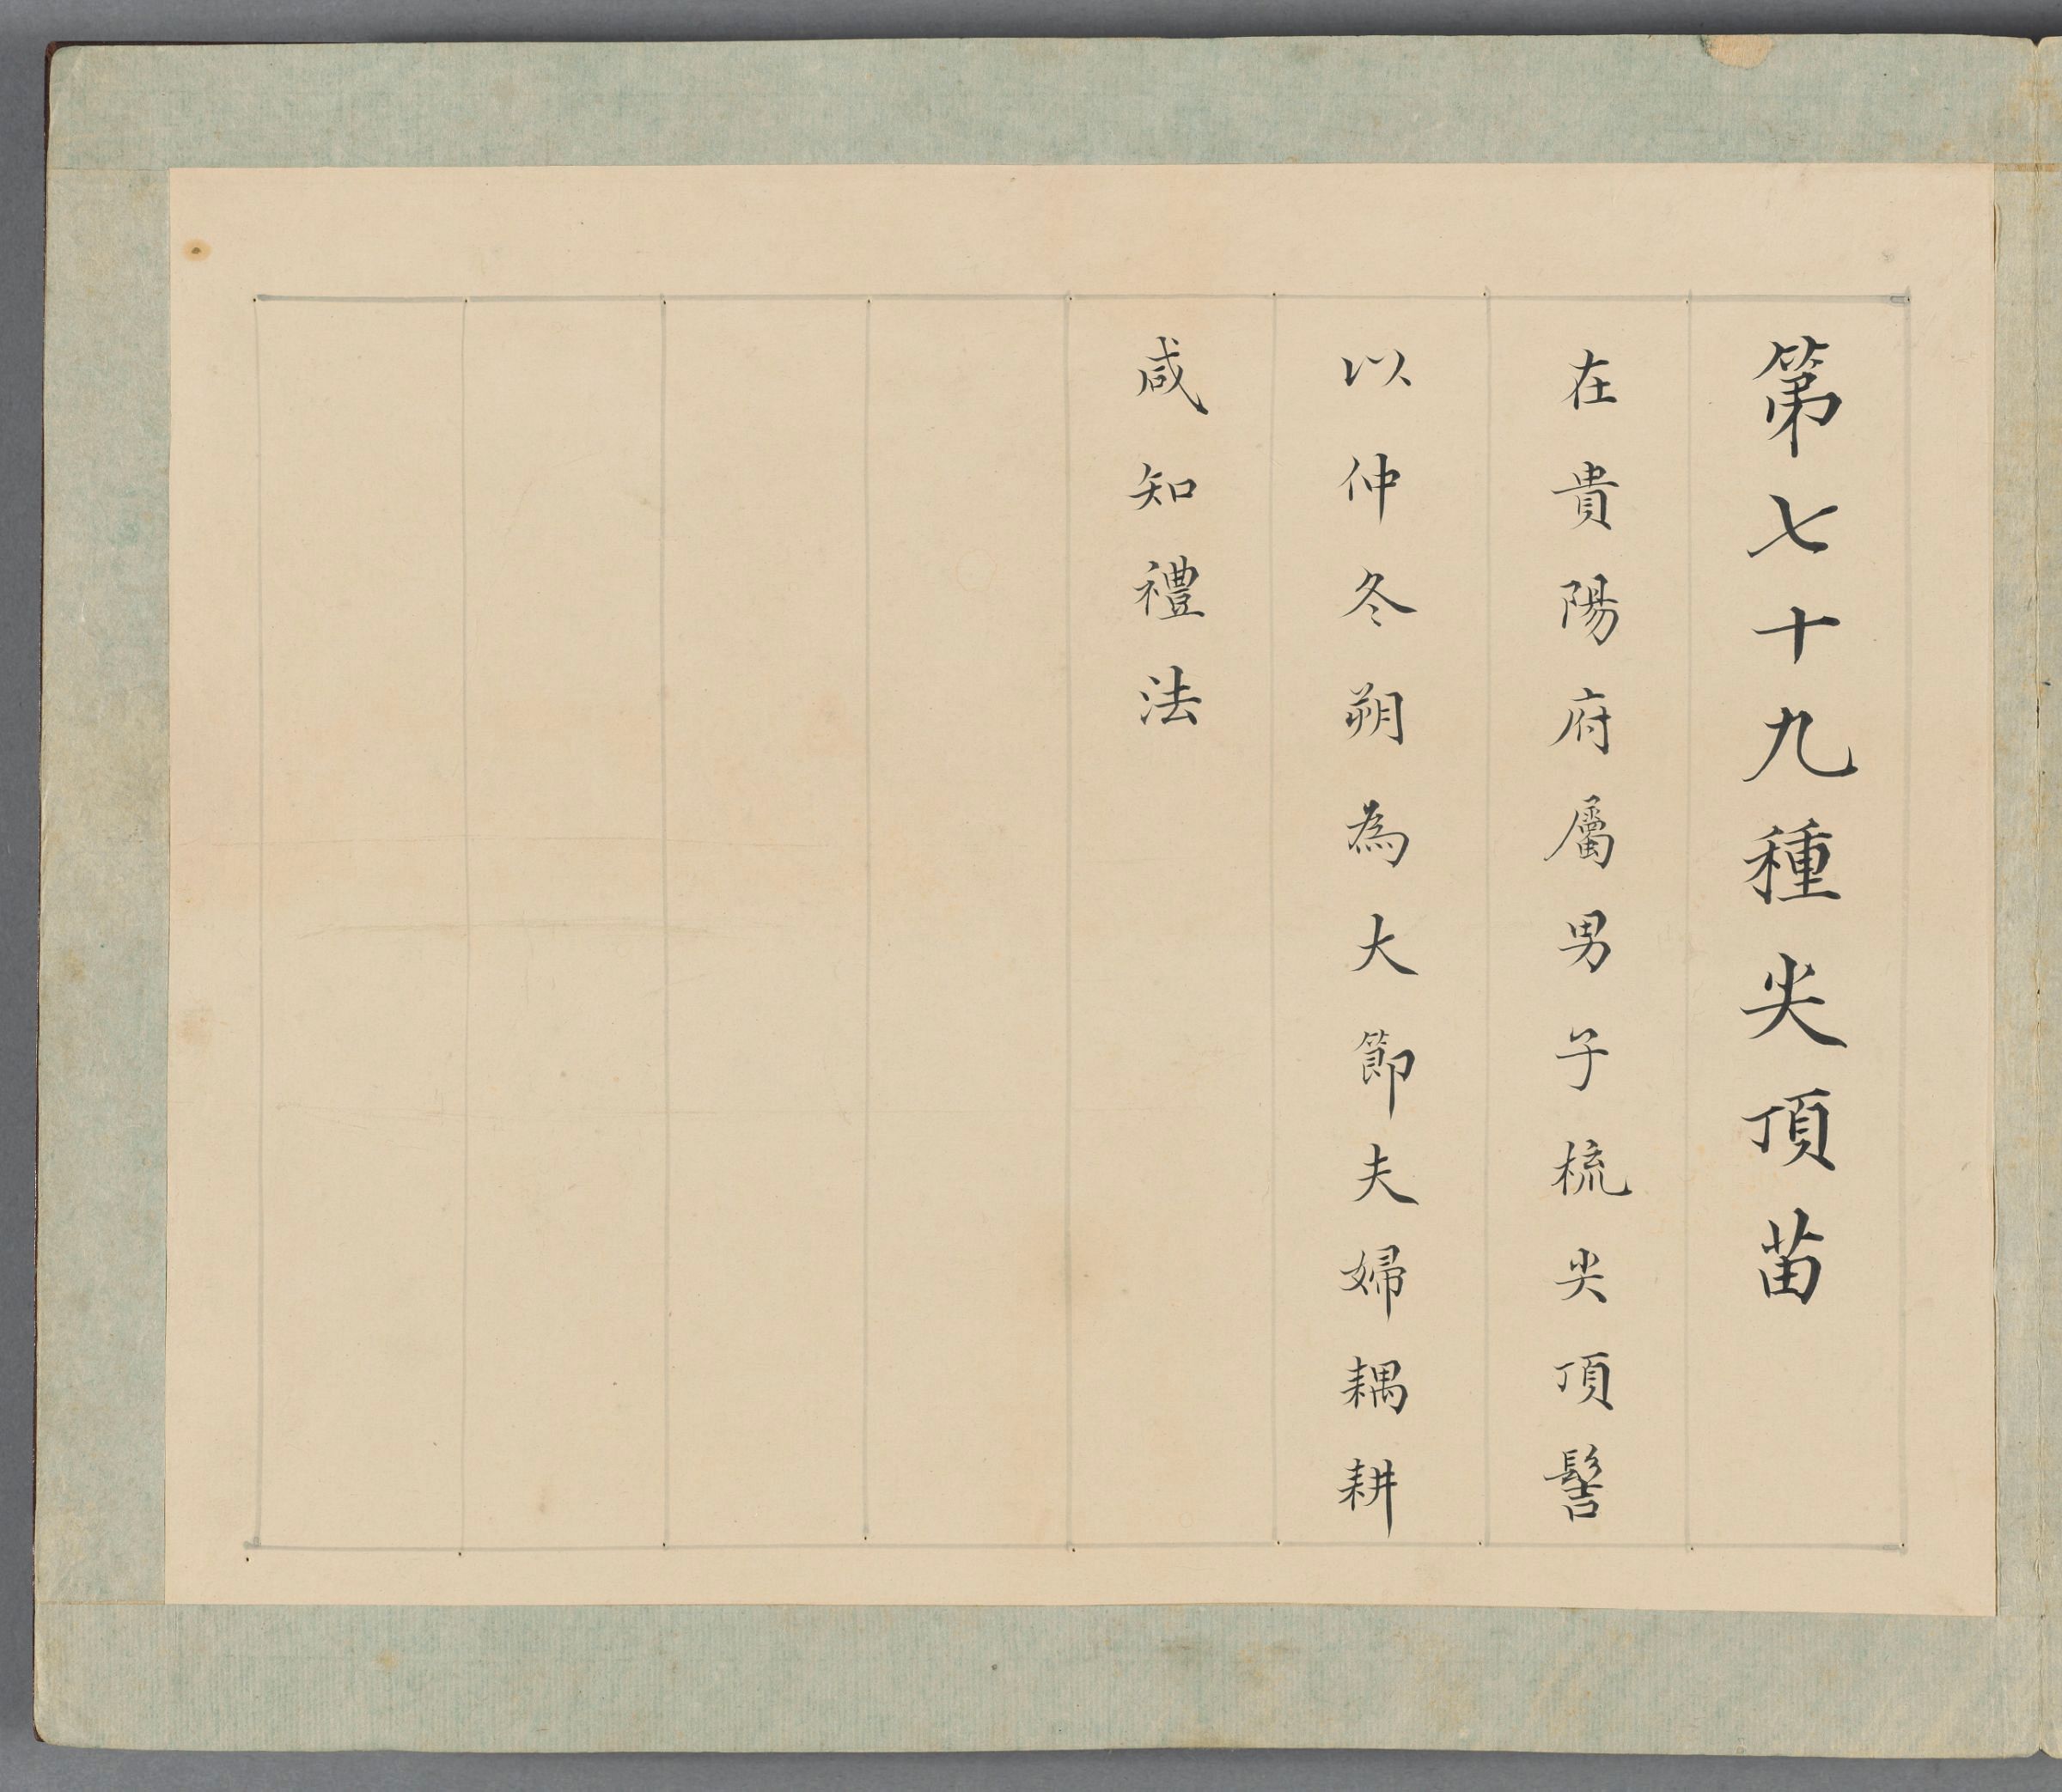 第七十九種尖頂苗
在貴陽府屬男子梳尖頂髻
以仲冬朔為大節夫婦耦耕
咸知禮法